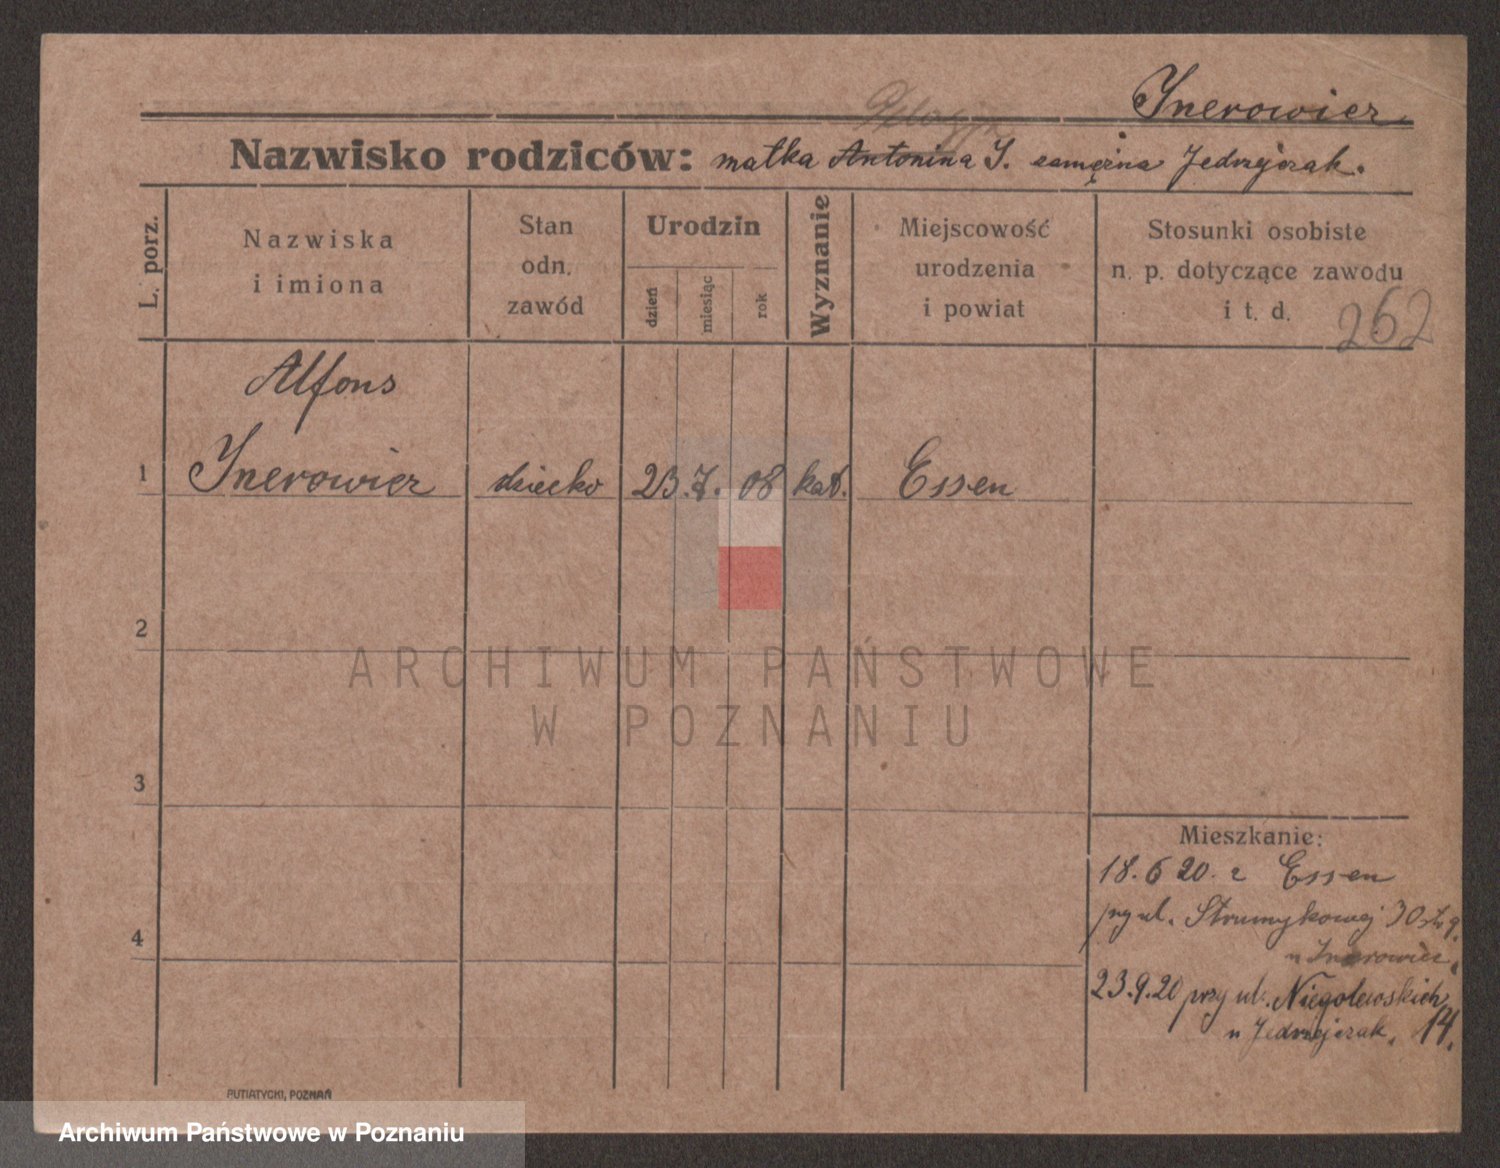 Inerowicz
Nazwisko rodziców: matka Antonina I. zamężna Jedrzejczak.
L. porz.
Nazwiska
i imiona
Stan
odn.
zawód
Urodzin
dzień
miesiąc
rok
Wyznanie
Miejscowość
urodzenia
i powiat
Stosunki osobiste
n. p. dotyczące zawodu
i t. d.
262
Alfons
1 Inerowicz dziecko 23. 7. 08 kat. Essen
2
3
4
Mieszkanie:
18. 6 20. z Essen
przy ul. Strumykowej 30
u Inerowicz.
23. 9. 20 przy ul. Niegolewskich
u Jedrzejczak. 14.
PUTIATYCKI, POZNAŃ
ARCHIWUM PAŃSTWOWE
W POZNANIU
Archiwum Państwowe w Poznaniu